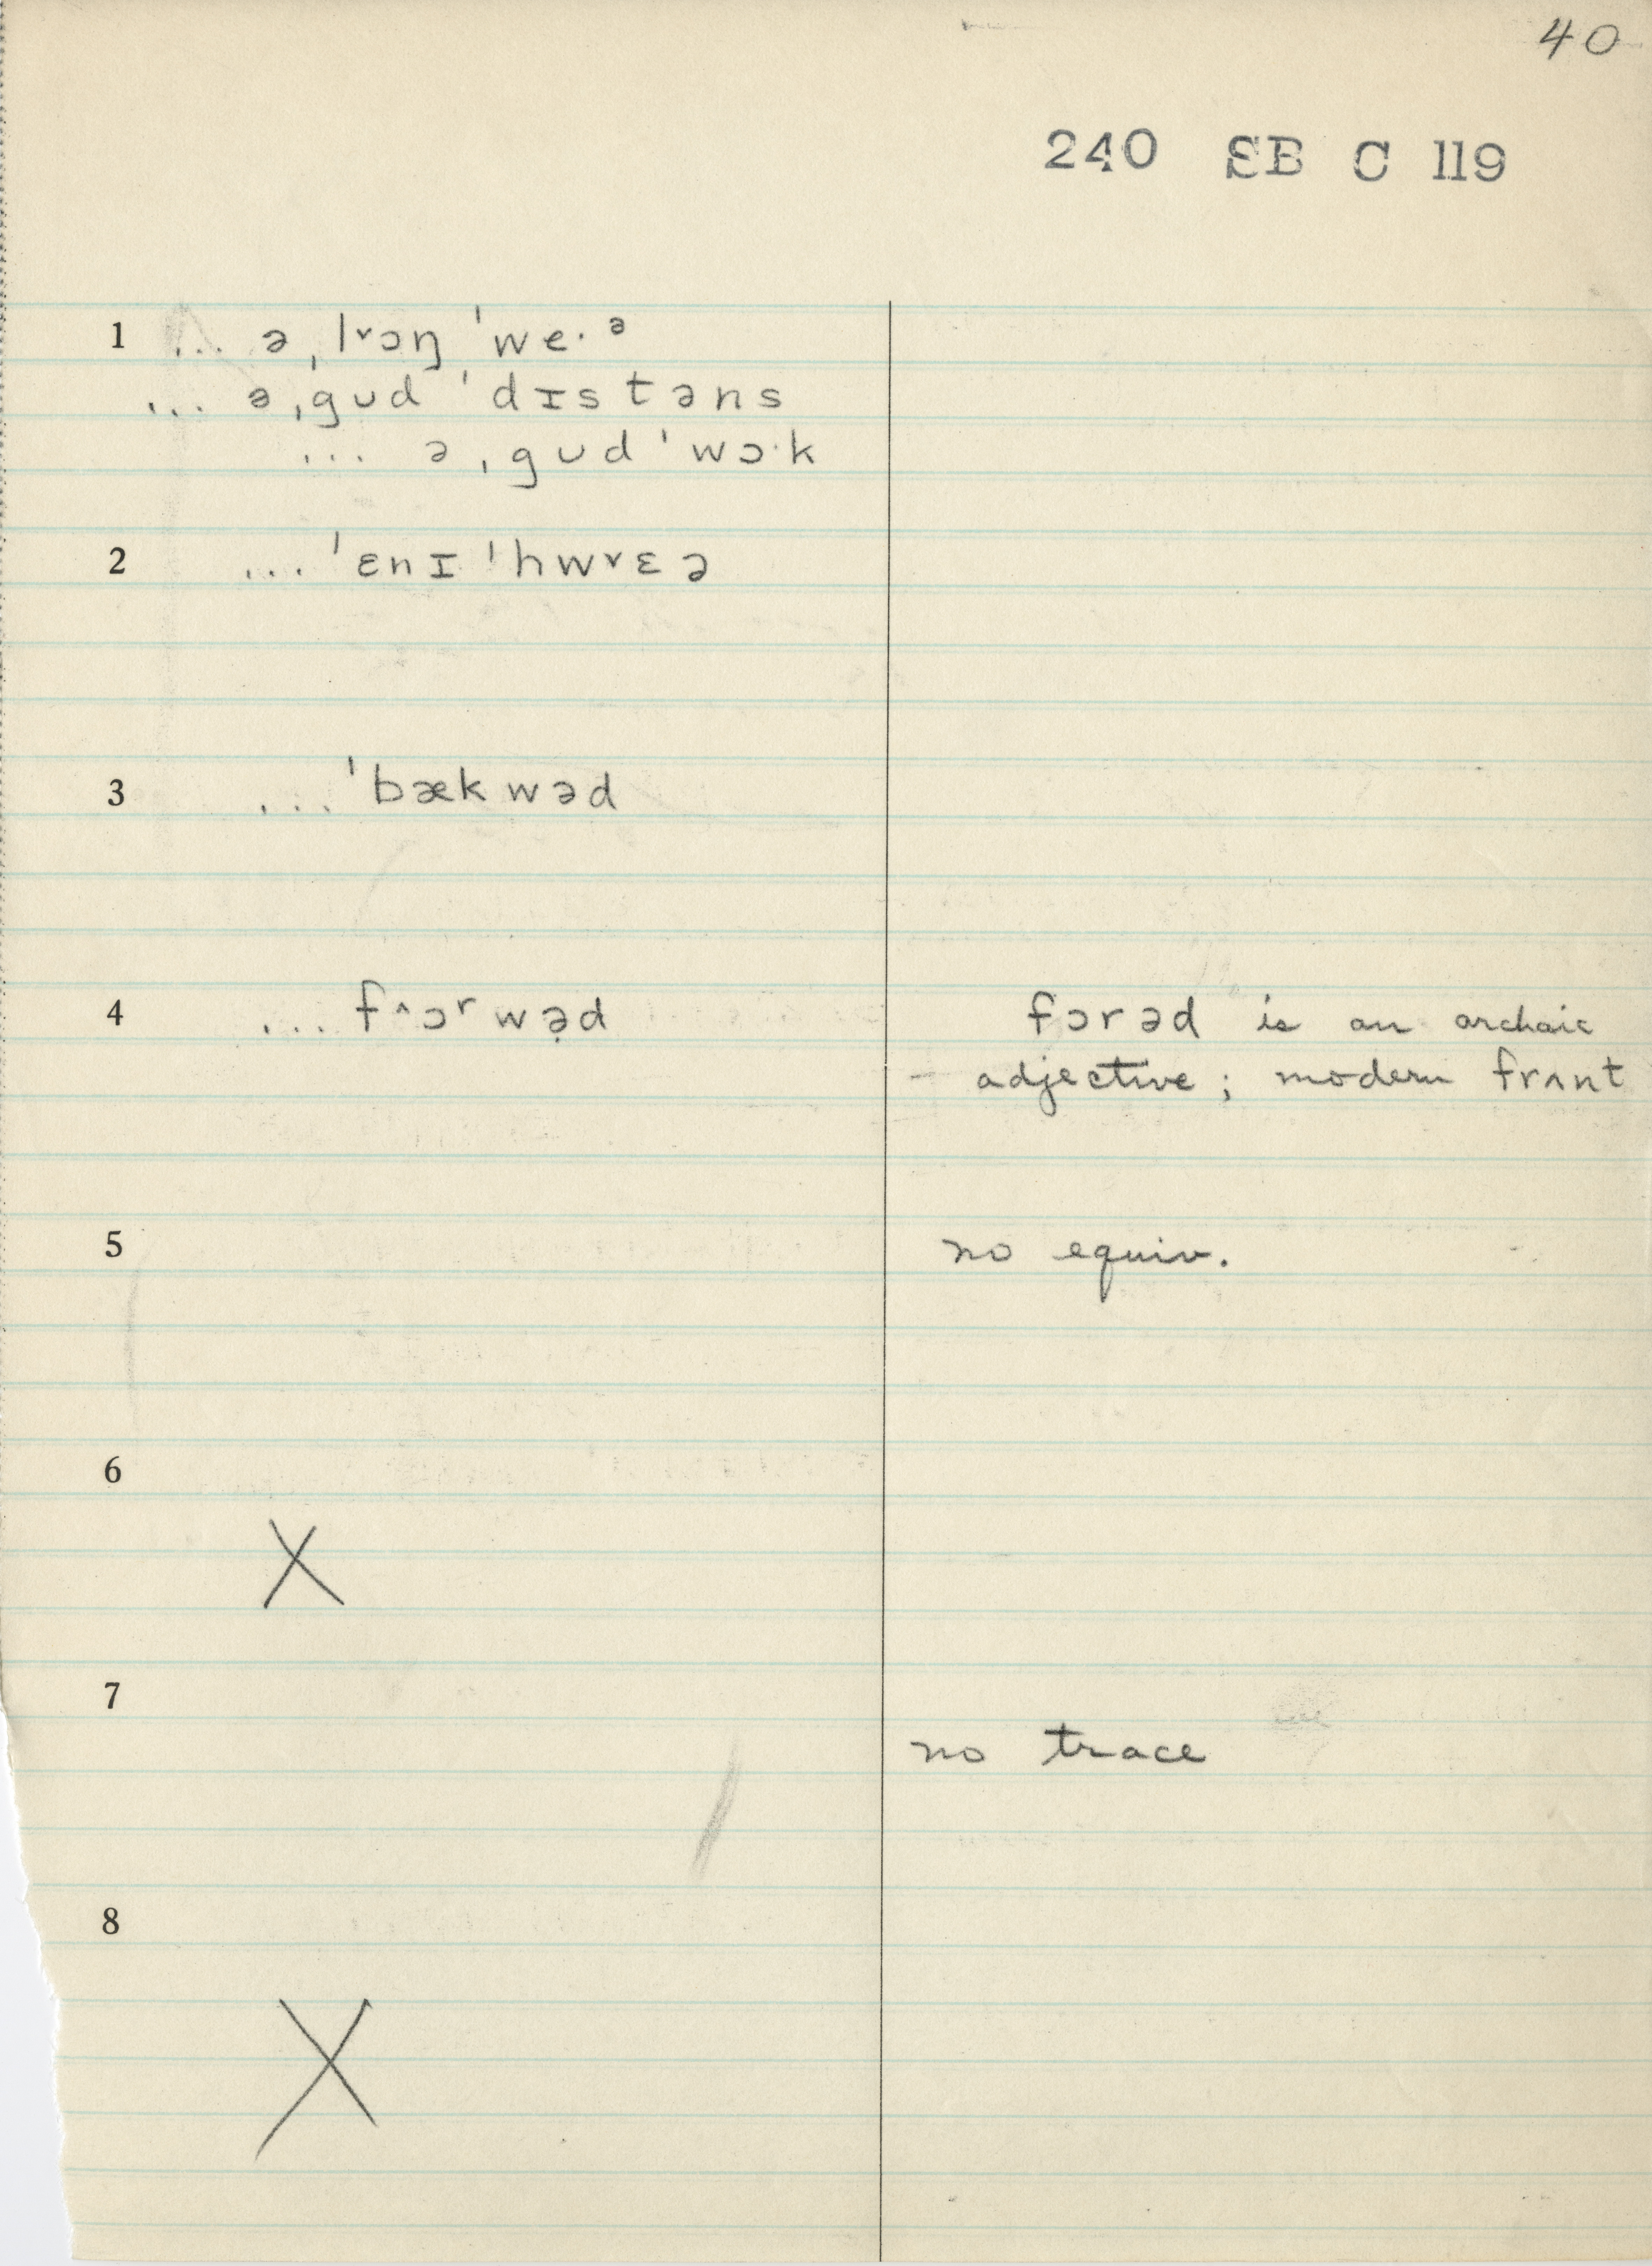 40
240 SB C 119
1 ... ə ˌl˅ɔŋ ˈwe·ᵊ
... ə ˌgud ˈdɪstəns
... ə ˌgud ˈwɔ·k
2 ... ˈɛnɪ ˈhw˅ɛə
3 ... ˈbækwəd
4 ... f^ɔʳwə̣d fɔrəd is an archaic
adjective; modern frʌnt
5 no equiv.
6
X
7
no trace
8
X